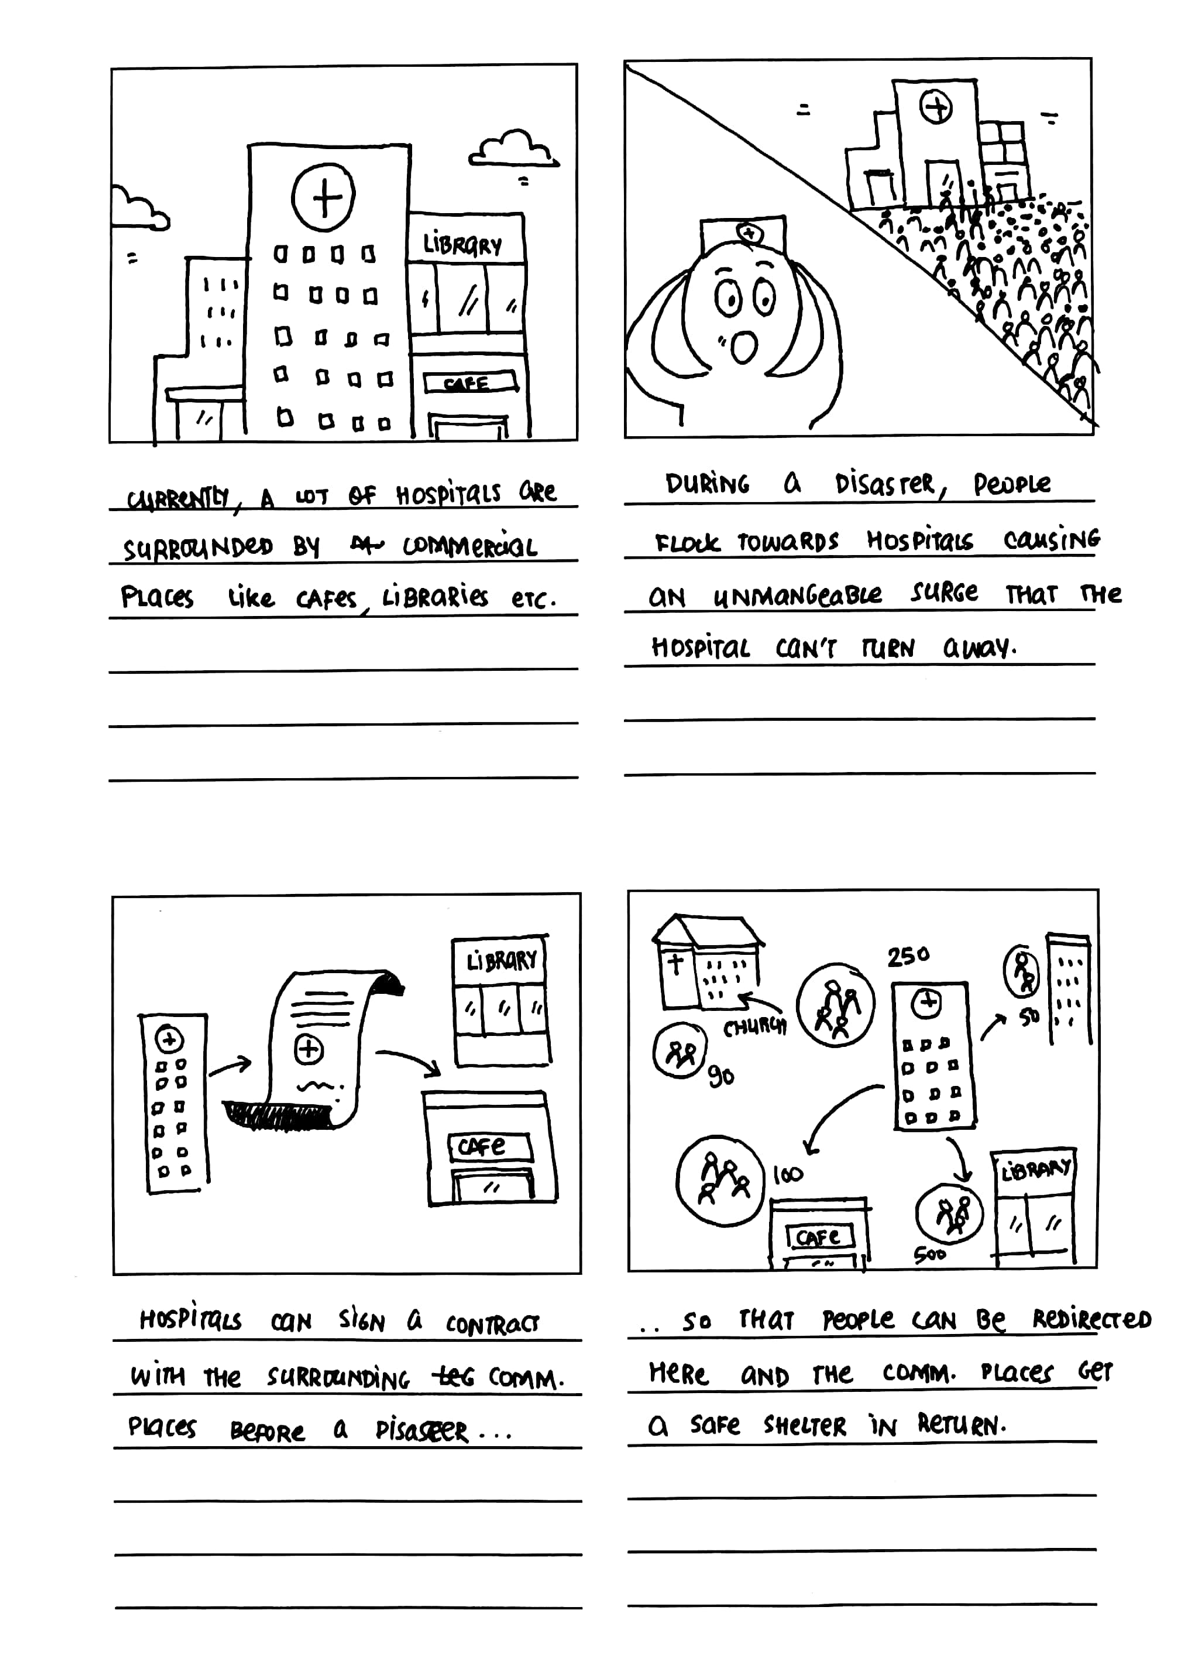 LIBRARY
CAFE
CURRENTLY, A LOT OF HOSPITALS ARE
SURROUNDED BY COMMERCIAL
PLACES LIKE CAFES, LIBRARIES ETC.
DURING A DISASTER, PEOPLE
FLOCK TOWARDS HOSPITALS CAUSING
AN UNMANGEABLE SURGE THAT THE
HOSPITAL CAN'T TURN AWAY.
LIBRARY
CAFE
HOSPITALS CAN SIGN A CONTRACT
WITH THE SURROUNDING COMM.
PLACES BEFORE A DISASTER...
250
50
CHURCH
90
100
LIBRARY
CAFE
500
.. SO THAT PEOPLE CAN BE REDIRECTED
HERE AND THE COMM. PLACES GET
A SAFE SHELTER IN RETURN.